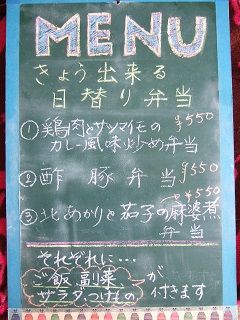 MENU
きょう出来る
日替り弁当
①鶏肉とサツマイモの ¥550
カレー風味炒め弁当
②酢豚弁当 ¥550
③北あかりと茄子の麻婆煮 ¥550
弁当
それぞれに…
ご飯 副菜
サラダ、つけもの が付きます